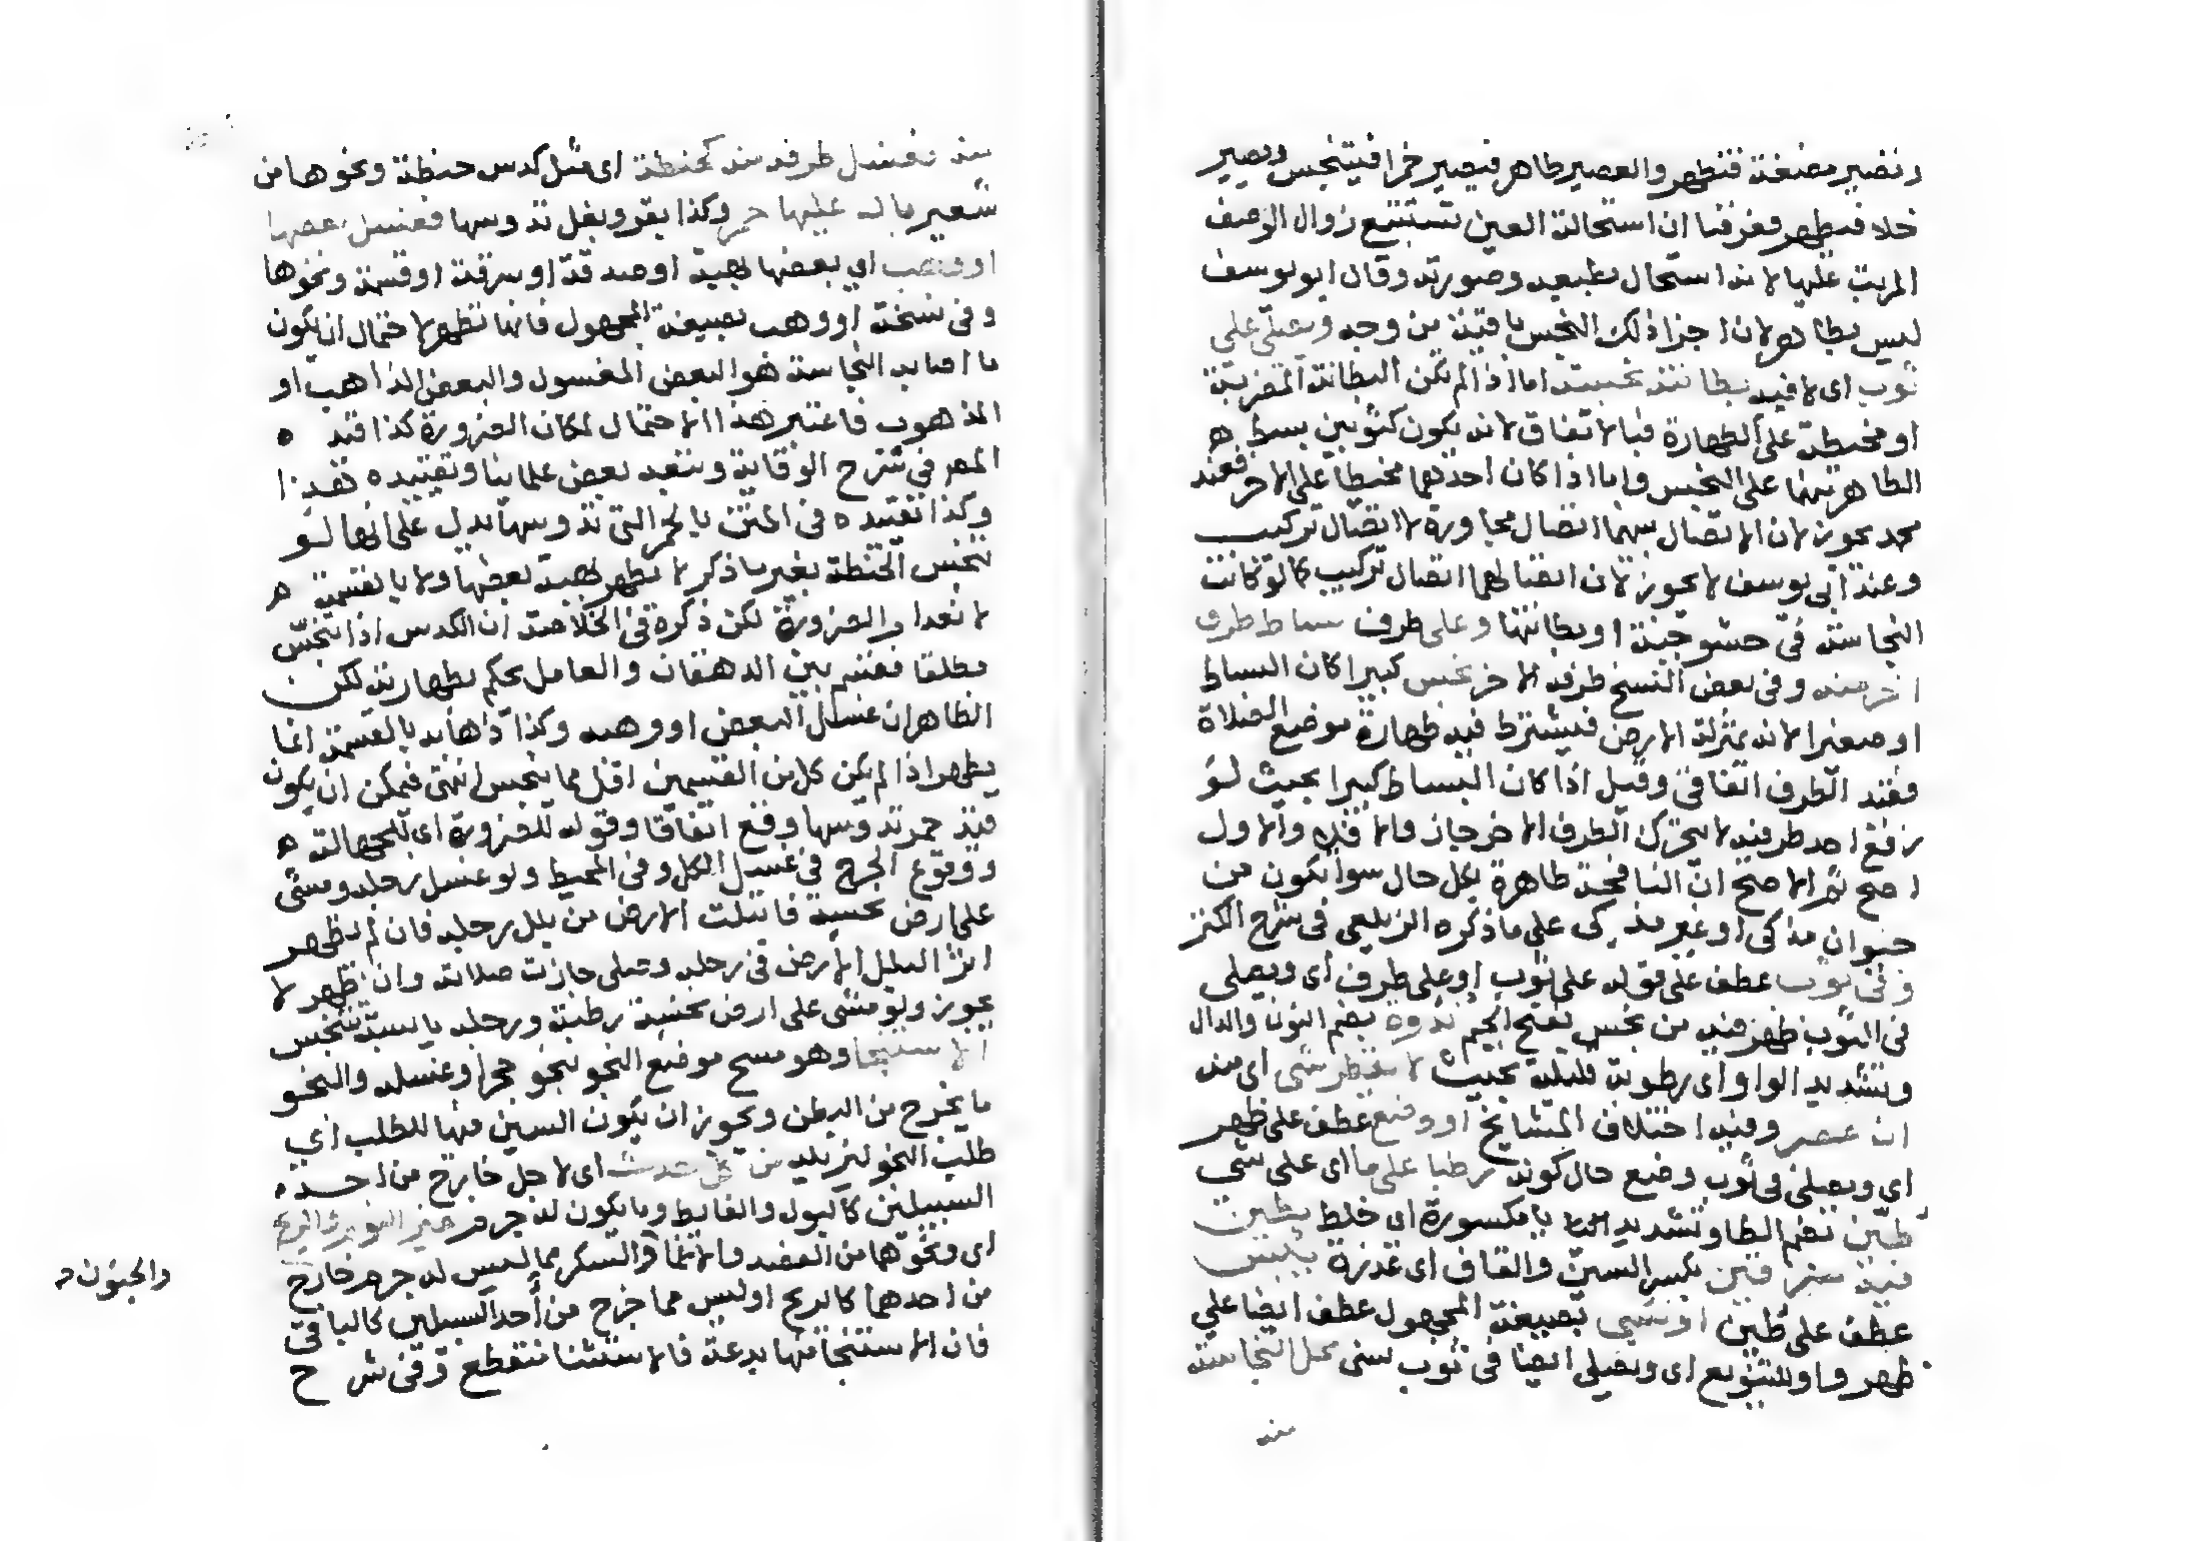 وتصير مضغة فتطهر والعصير طاهر فيصير خمرا فيتنجس ويصير
خلا فيطهر فعرفنا ان استحالة العين تستتبع زوال الوصف
المرتب عليها لانه استحال بطبعه وصورته وقال ابو يوسف
ليس بطاهر لان اجزا ذلك النجس باقية من وجه ويصلى على
ثوب اى لا فيه بطانته نجسة اما اذا لم تكن البطانة المضربة
او مخيطة على الطهارة فبالاتفاق لانه يكون كثوبين بسط ه
الطاهر منها على النجس واما اذا كان احدهما مخيطا على الاخر فعند
محمد يجوز لان الاتصال بينهما اتصال مجاورة لا اتصال تركيب
وعند ابى يوسف لا يجوز لان اتصالهما اتصال تركيب كما لو كانت
النجاسة فى حشو جبة او بطانتها وعلى طرف بساط طرف
اخر منه وفى بعض النسخ طرفه الاخر نجس كبيرا كان البساط
او صغيرا لانه بمنزلة الارض فيشترط فيه طهارة موضع الصلاة
فقيد الطرف اتفاقى وقيل اذا كان البساط كبيرا بحيث لو
رفع احد طرفيه لا يتحرك الطرف الاخر جاز والا فلا والاول
اصح ثم الاصح ان النافجة طاهرة بكل حال سوا تكون من
حيوان مذكى او غير مذكى على ما ذكره الزيلعى فى شرح الكنز
وفى ثوب عطف على قوله على ثوب او على طرف اى ويصلى
فى الثوب ظهر فيه من نجس بفتح الجيم ندوة بضم النون والدال
وتشديد الواو اى رطوبة قليلة بحيث لا يقطر شى اى منه
ان عصر وفيه اختلاف المشايخ او وضع عطف على ظهر
اى ويصلى فى ثوب وضع حال كونه رطبا على ما اى على شى
طين بضم الطا وتشديد اليا يا مكسورة اى خلط بطين
فيه سرقين بكسر السين والقاف اى عذرة يبس
عطف على طين او نسى بصيغة المجهول عطف ايضا على
ظهر واو للتنويع اى ويصلى ايضا فى ثوب نسى محل النجاسة
منه
منه فغسل طرفه منه كحنطة اى مثل كدس حنطة ونحوها من
شعير بال عليها حمر وكذا بقر وبغل تدوسها فغسل بعضها
او وهب اى بعضها لهبة او صدقة او سرقة او قسمة ونحوها
وفى نسخة او وهب بصيغة المجهول فانها تطهر لاحتمال ان يكون
ما اصابه النجاسة هو البعض المغسول والبعض الذاهب او
المذهوب فاعتبر هذا الاحتمال لمكان الضرورة كذا قيد ه
المص فى شرح الوقاية وتبعه بعض علماينا وتقييده بهذا
وكذا تقييده فى المتن بالحمر التى تدوسها يدل على انها لو
تنجس الحنطة بغير ما ذكر لا تطهر لهبة بعضها ولا بالقسمة ه
لانعدام الضرورة لكن ذكره فى الخلاصة ان الكدس اذا تنجس
مطلقا فقسم بين الدهقان والعامل يحكم بطهارته لكن
الظاهر ان غسل البعض او وهبه وكذا ذهابه بالقسمة انما
يطهر اذا لم يكن كل من القسمين اقل مما ينجس انتهى فيمكن ان يكون
قيد حمر تدوسها وقع اتفاقا وقوله للضرورة اى للجهالة ه
ووقوع الحرج فى غسل الكل وفى المحيط ولو غسل رجله ومشى
على ارض نجسة فابتلت الارض من بلل رجله فان لم يظهر
اثر البلل الارض فى رجله وصلى جازت صلاته وان ظهر لا
يجوز ولو مشى على ارض نجسة رطبة ورجله يابسة تنجس
الاستنجا وهو مسح موضع النجو بنحو حجر او غسله والنجو
ما يخرج من البطن ويجوز ان تكون السين فيها للطلب اى
طلب النجو ليزيله من كل حدث اى لاجل خارج من احد ه
السبيلين كالبول والغايط وما يكون له جرم غير النوم والريح
اى ونحوهما من الفصد والاغماء والسكر مما ليس له جرم خارج
من احدهما كالريح او ليس مما خرج من احد السبيلين كالباقى
فان الاستنجا فيها بدعة فالاستثنا منقطع وفى شرح
والجنون